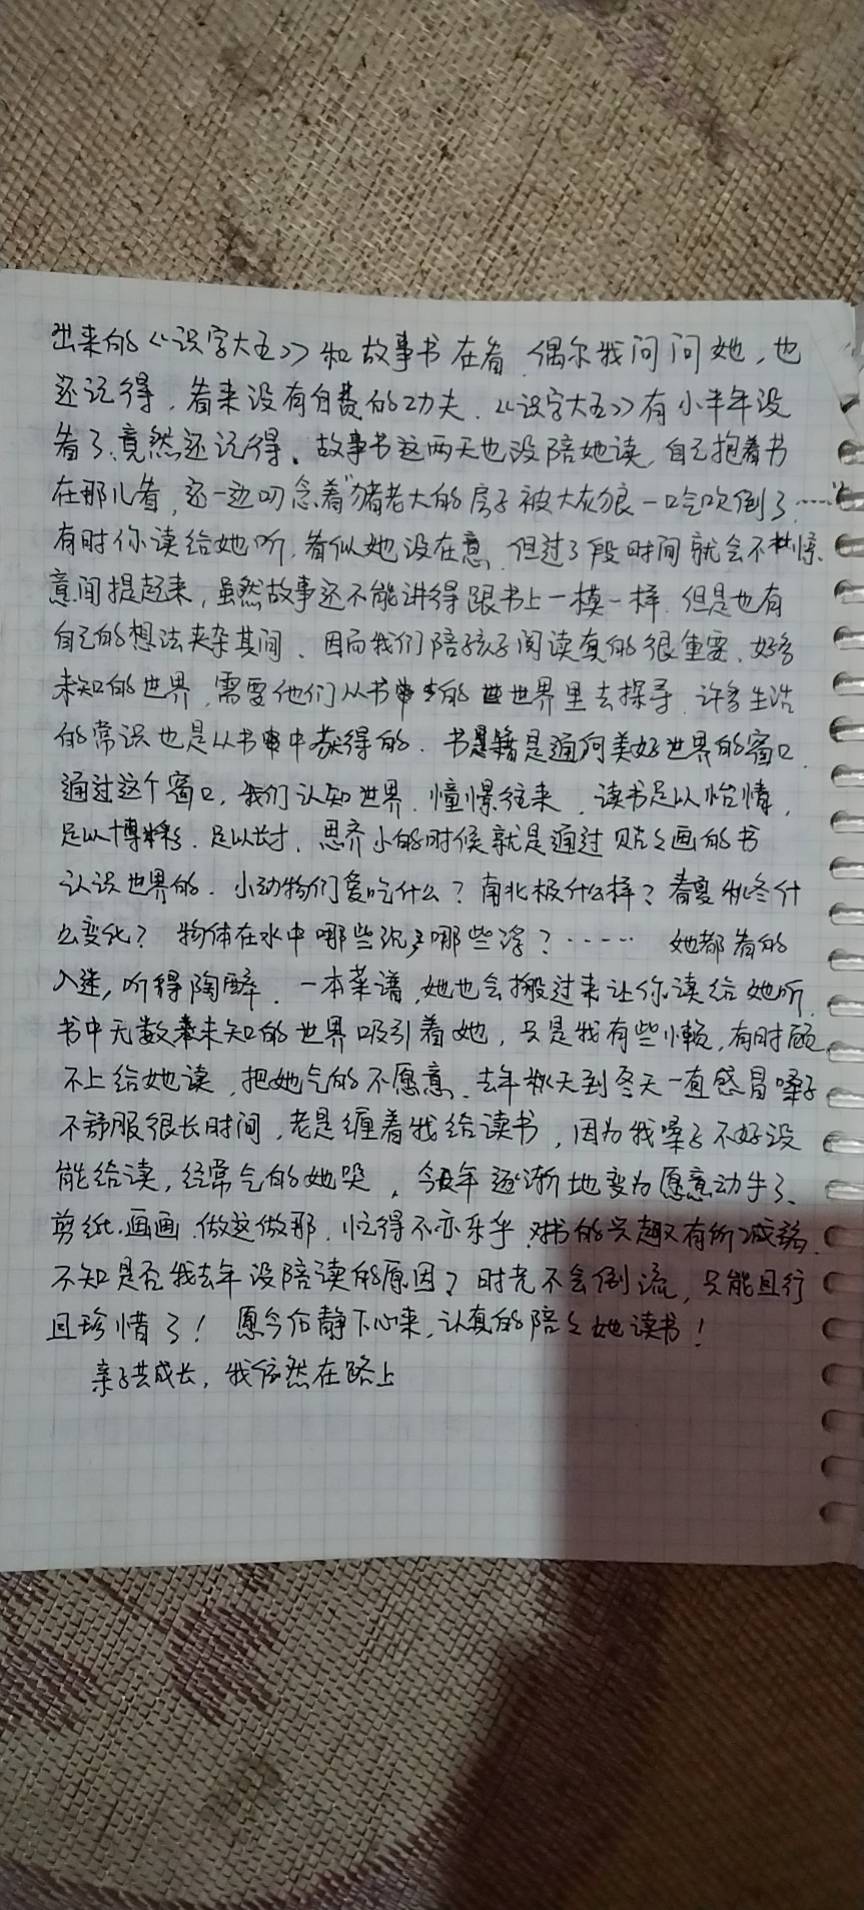 出来的《识字大王》和故事书在看，偶尔我问问她，也
还记得，看来没有白费的功夫，《识字大王》有小半年没
看了、竟然还记得。故事书这两天也没陪她读，自己抱着书
在那儿看，还一边叨念着"猪老大的房子被大灰狼一口气吹倒了……"
有时你读给她听，看似她没在意，但过了段时间就会不经
意间提起来，虽然故事还不能讲得跟书上一模一样，但是也有
自己的想法夹杂其间、因而我们陪孩子阅读真的很重要、好多
未知的世界，需要他们从书本的世界里去探寻，许多生活
的常识也是从书中获得的．书籍是通向美好世界的窗口，
通过这个窗口，我们认知世界．憧憬往来．读书足以怡情，
足以博彩，足以长才．思齐小的时候就是通过贴贴画的书
认识世界的．小动物们爱吃什么？南北极什么样？春夏秋冬什
么变化？物体在水中哪些沉，哪些浮？…… 她都看的
入迷，听得陶醉．一本菜谱，她也会搬过来让你读给她听，
书中无数未知的世界吸引着她，只是我有些小懒，有时顾
不上给她读，把她气的不愿意．去年秋天到冬天一直感冒嗓子
不舒服很长时间，老是缠着我给读书，因为我嗓子不好没
能给读，经常气的她哭．今年逐渐地变为愿意动手了、
剪纸．画画．做这做那．忙得不亦乐乎，对书的兴趣又有所减弱．
不知是否我去年没陪读的原因？时光不会倒流，只能且行
且珍惜了！愿今后静下心来，认真的陪陪她读书！
亲子共成长，我依然在路上